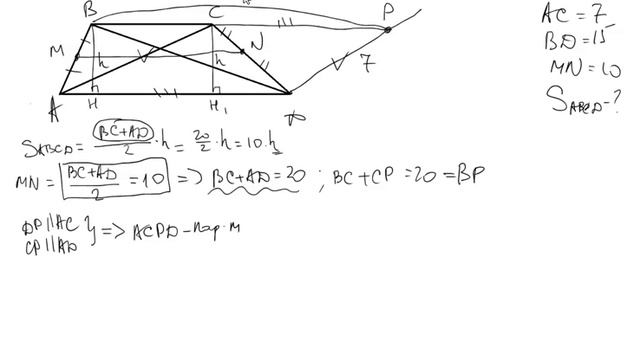 15
B C P
M N
h h 7
A H H₁ D
AC = 7
BD = 15
MN = 10
S_ABCD - ?
S_ABCD = (BC+AD)/2 · h = 20/2 · h = 10·h
MN = (BC+AD)/2 = 10 => BC+AD = 20 ; BC + CP = 20 = BP
DP || AC } => ACPD - пар-м
CP || AD